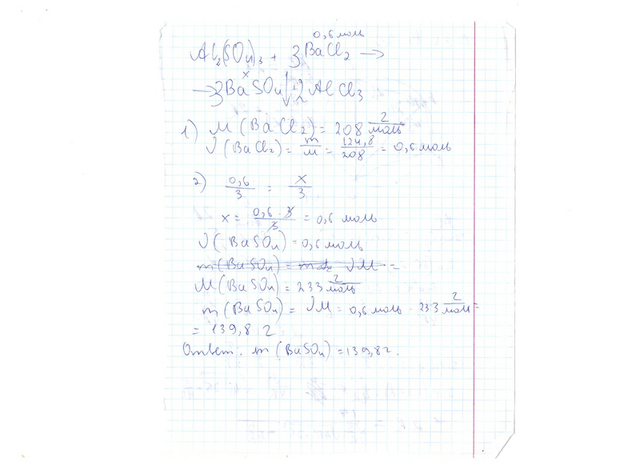 0,6 моль
Al₂(SO₄)₃ + 3BaCl₂ →
x
→ 3BaSO₄↓ + 2AlCl₃
1) M(BaCl₂) = 208 г/моль
ν(BaCl₂) = m/M = 124,8/208 = 0,6 моль
2) 0,6/3 = x/3
x = 0,6·3/3 = 0,6 моль
ν(BaSO₄) = 0,6 моль
M(BaSO₄) = 233 г/моль
m(BaSO₄) = νM = 0,6 моль · 233 г/моль =
= 139,8 г
Ответ: m(BaSO₄) = 139,8г.